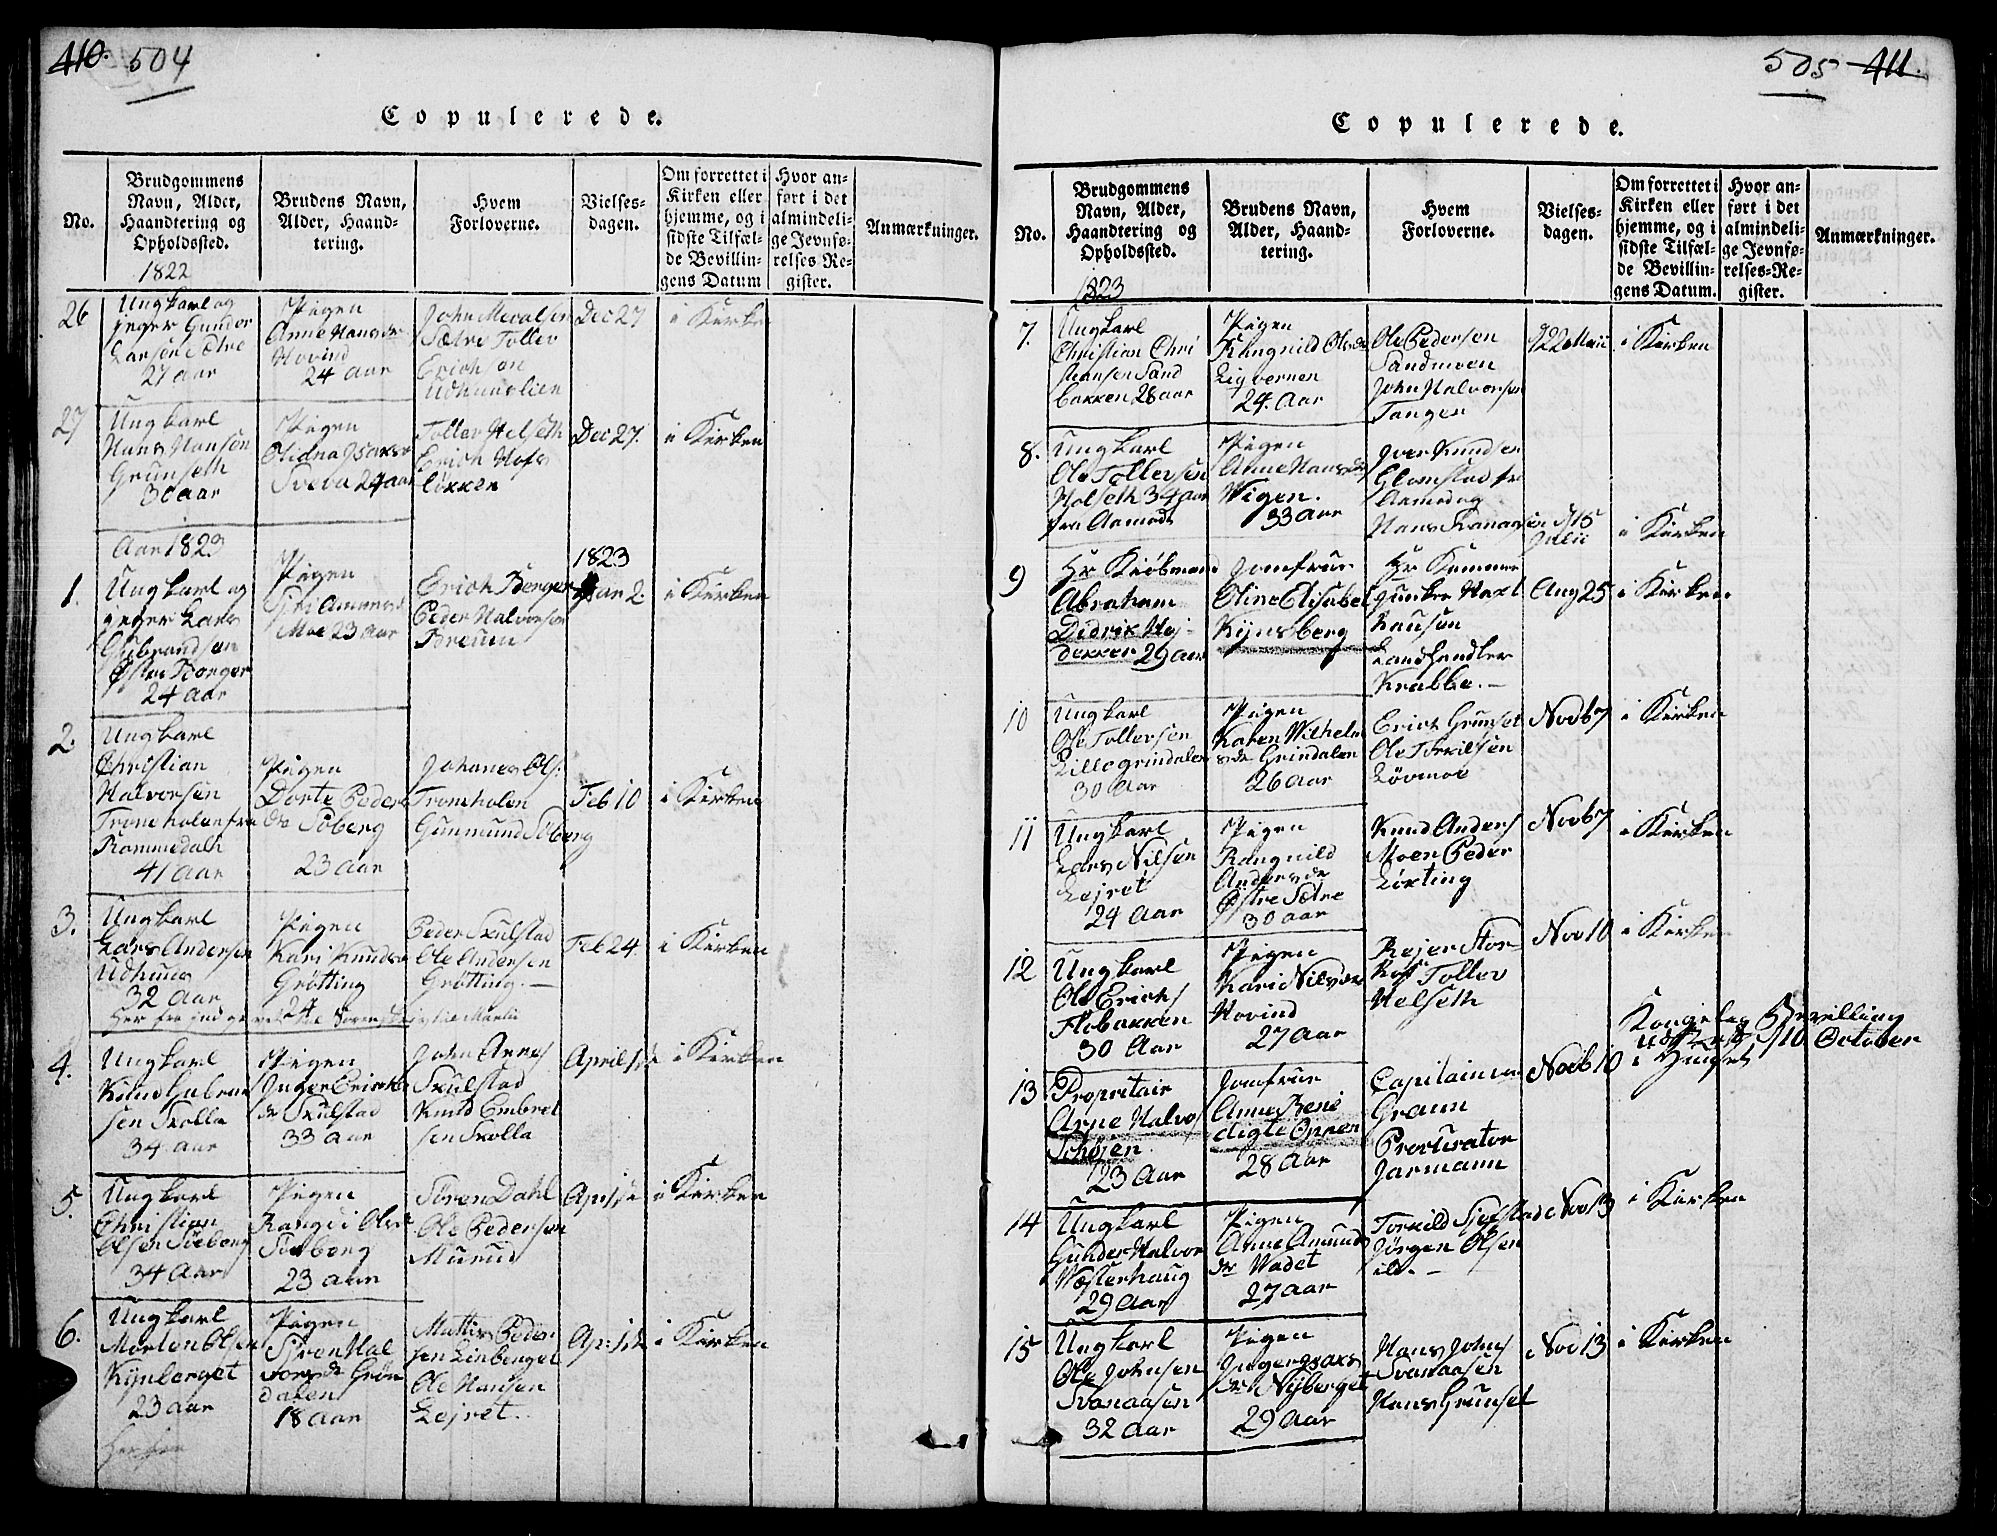 410. 504
Copulerede.
No.
Brudgommens
Navn, Alder,
Haandtering og
Opholdssted.
Brudens Navn,
Alder, Haand-
tering.
Hvem
Forloverne.
Vielses-
dagen.
Om forrettet i
Kirken eller
hjemme, og i
sidste Tilfæl-
de Bevillin-
gens Datum
Hvor an-
ført i det
almindeli-
ge Jevnfø-
relses Re-
gister.
Anmærkninger.
1822
26
Ungkarl og
jeger Gunder
Larsen Sætre
27 aar
Pigen
Anne Hansdr
Hovind
24 aar
John
Sætre Tollev
Erichsen
Udhuuslien
Dec 27
i Kirken
27
Ungkarl
Hans Hansen
Grunseth
30 aar
Pigen
24 aar
Tollev Helseth
Erich Hofs
løkken
Dec 27.
i Kirken
Aar 1823
1823
1.
Ungkarl og
jeger Lars
Gulbrandsen
Østre Berger
24 aar
Pigen
Moe 23 aar
Erich Berger
Peder Halvorsen
Jan 2.
i Kirken
2.
Ungkarl
Christian
Halvorsen
41 aar
Pigen
Dorte Peders
dr Soberg
23 aar
Johanes Ols:
Tromholen
Gunmund Soberg
Feb 10
i Kirken
3.
Ungkarl
Lars Andersen
Udhuus
32 aar
Pigen
Kari Knudsd
Grøtting
24
Peder Skulstad
Ole Andersen
Grøtting. —
Feb 24
i Kirken
4.
Ungkarl
Knud
sen Skolla
34 aar
Pigen
Inger Erichs
dr Skulstad
33 aar
John Arnes
Skulstad
Knud Embret
sen Skolla
April 1ste
i Kirken
5.
Ungkarl
Christian
Olsen Soeberg
34 aar
Pigen
Rangdi Olsd
Soeberg
23 aar
Søren Dahl
Ole Pedersen
Murud
Apr 1ste
i Kirken
6.
Ungkarl
Morten Olsen
Kynberget
23 aar
Pigen
Siron Hal
vorsdr Grøn
dalen
18 aar
Mattis Peder
sen Linberget
Ole Hansen
Lejret.
Apr: 1ste
i Kirken
505 411.
Copulerede.
No.
Brudgommens
Navn, Alder,
Haandtering og
Opholdssted.
Brudens Navn,
Alder, Haand-
tering.
Hvem
Forloverne.
Vielses-
dagen.
Om forrettet i
Kirken eller
hjemme, og i
sidste Tilfæl-
de Bevillin-
gens Datum.
Hvor an-
ført i det
almindeli-
ge Jevnfø-
relses-Re-
gister.
Anmærkninger.
1823
7.
Ungkarl
Christian Chri
stiansen Sand
bakken 28 aar
Pigen
Rangnild Olsdr
Ligvernen
24. Aar
Ole Pedersen
Sandmoen
John Halvorsen
Tangen
d 22 Maii
i Kirken
8.
Ungkarl
Ole Tollevsen
Holseth 34 aar
fra Aamodt
Pigen
Anne Hansdr
Wigen.
33 aar
Iver Knudsen
Glomstad fr
Aamod og
Hans
d 15
Julii
i Kirken
9
Hr Kiøbmand
Abraham
Didrik Hoj
dekker 29 aar
Jomfrue
Oline Elisabet
Kynsberg
Hr Kammer
junker Haxt
hausen
Landhandler
Krabbe. —
Aug 25
i Kirken
10
Ungkarl
Ole Tollevsen
Lillegrindalen
30 Aar
Pigen
Karen Wilhelm
sdr Grindalen
26 Aar
Erich Grunset
Ole Torkilsen
Løvmoe
Novb 7
i Kirken
11
Ungkarl
Lars Nilsen
Lejret
24 Aar
Pigen
Rangnild
Andersdr
Østre Sætre
30 aar
Knud Anders
Moen Peder
Løxting
Novb 7
i Kirken
12
Ungkarl
Ole Erichs
Flobakken
30 Aar
Pigen
Karie Nilsdr
Hovind
27 Aar
Rejer Stor
Hof Tollev
Helseth
Nov 10
i Kirken
13
Propritair
Arne Halvo
Schøjen
23 Aar
Jomfrue
Anne Bene
digte Opsen
28 Aar
Capitain von
Graun
Procurator
Jarmann
Novb 10
Kongeleg Bevilling
udstædt d 10 October
i Huuset
14
Ungkarl
Gunder Halvor
Westerhaug
29 Aar
Pigen
Anne Amunds
dr Vadet
27 aar
Torkild Sjølstad
Jørgen Olsen
ib. —
Nov 13
i Kirken
15
Ungkarl
Ole Johnsen
Svanaasen
32 Aar
Pigen
Nyberget
29 Aar
Hans Johns
Svanaasen
Hans Grunset
Nov 13
i Kirken